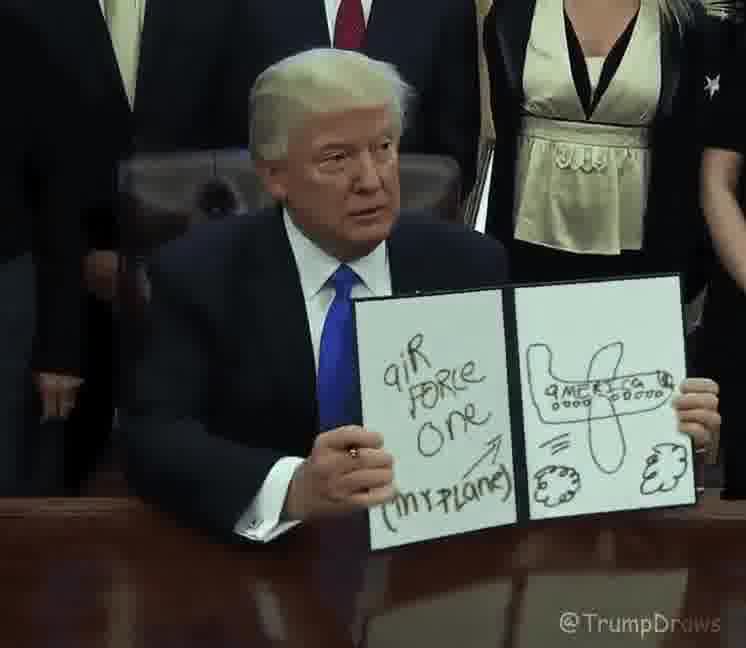 aiR
FORCE
One
(mY PLANe)
aMERICa
@TrumpDraws